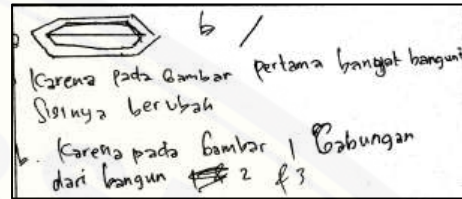 b /
Karena pada Gambar pertama bangat banguni
Sisinya berubah
b. Karena pada Gambar 1 Gabungan
dari bangun 2 & 3